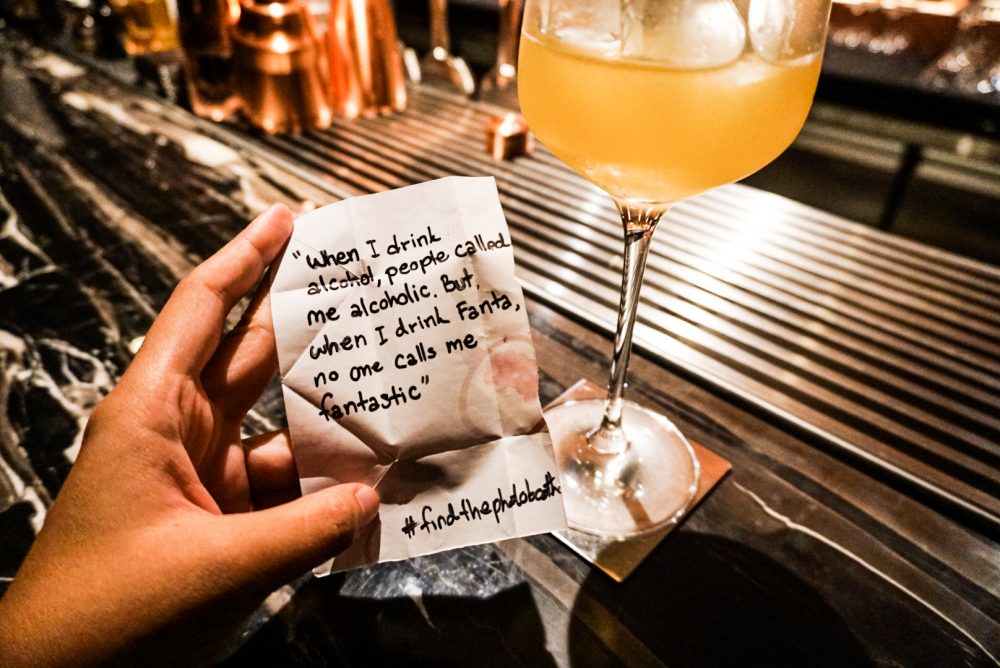 "When I drink
alcohol, people called
me alcoholic. But,
when I drink Fanta,
no one calls me
fantastic"
#findthephotobooth